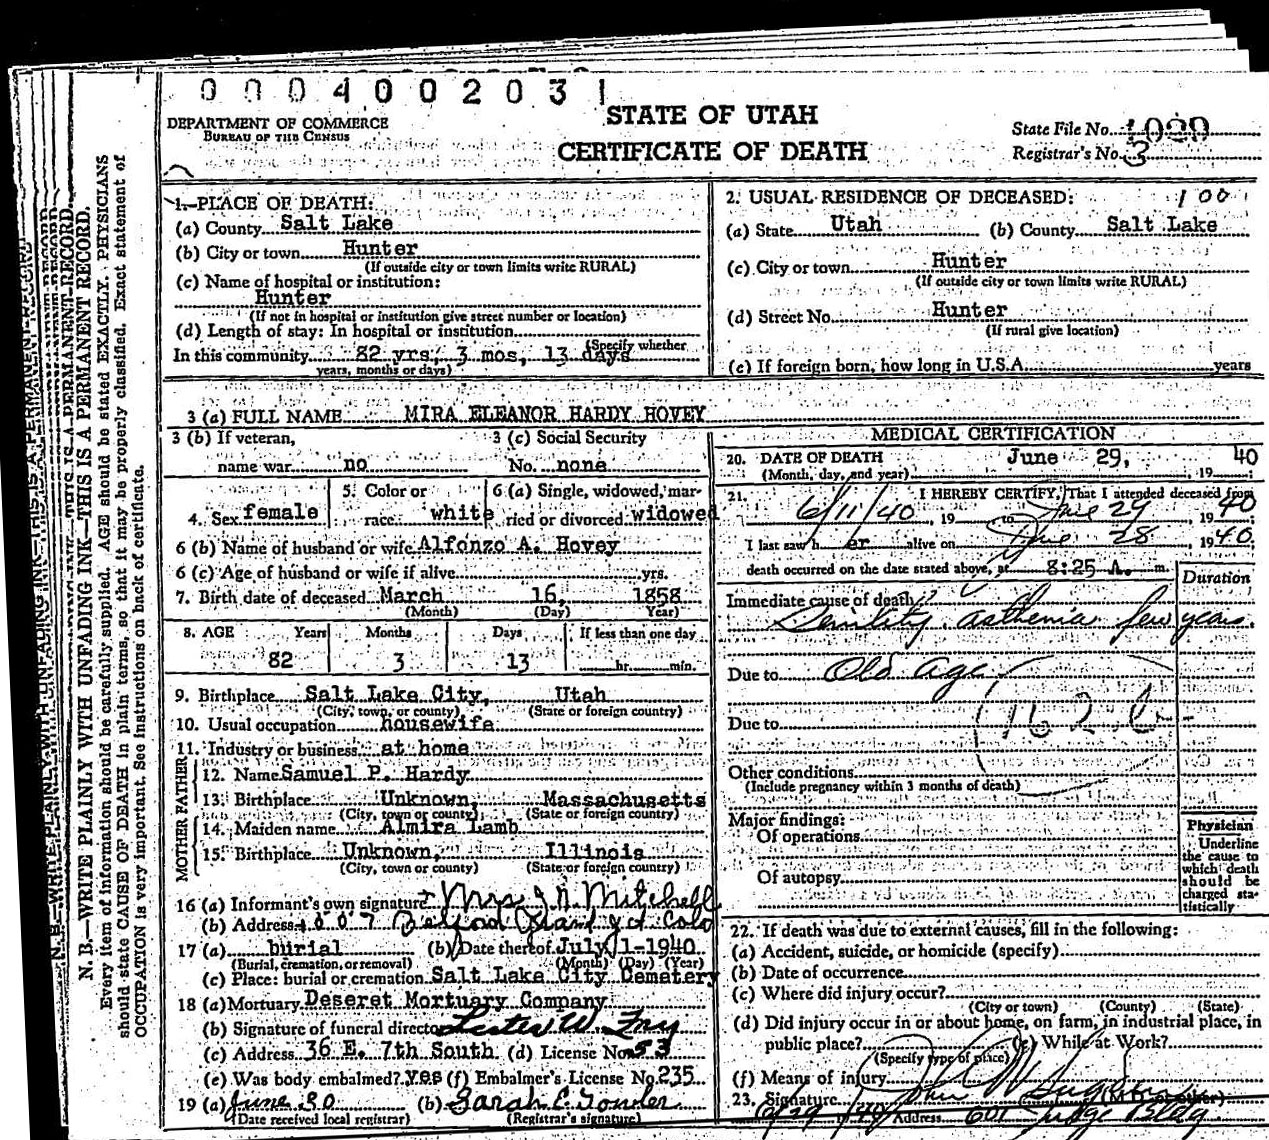 0004002031
DEPARTMENT OF COMMERCE
BUREAU OF THE CENSUS
STATE OF UTAH
CERTIFICATE OF DEATH
State File No. 1020
Registrar's No. 3
1. PLACE OF DEATH:
(a) County Salt Lake
(b) City or town Hunter
(If outside city or town limits write RURAL)
(c) Name of hospital or institution:
Hunter
(If not in hospital or institution give street number or location)
(d) Length of stay: In hospital or institution
(Specify whether
In this community 82 yrs, 3 mos, 13 days
years, months or days)
2. USUAL RESIDENCE OF DECEASED: 100
(a) State Utah (b) County Salt Lake
(c) City or town Hunter
(If outside city or town limits write RURAL)
(d) Street No. Hunter
(If rural give location)
(e) If foreign born, how long in U.S.A. years
3 (a) FULL NAME MIRA ELEANOR HARDY HOVEY
3 (b) If veteran, 3 (c) Social Security
name war no No. none
4. Sex female 5. Color or race white 6 (a) Single, widowed, married or divorced widowed
6 (b) Name of husband or wife Alfonzo A. Hovey
6 (c) Age of husband or wife if alive yrs.
7. Birth date of deceased March 16, 1858
(Month) (Day) Year)
8. AGE Years Months Days If less than one day
82 3 13 hr. min.
9. Birthplace Salt Lake City, Utah
(City, town, or county) (State or foreign country)
10. Usual occupation housewife
11. Industry or business at home
FATHER
12. Name Samuel P. Hardy
13. Birthplace Unknown, Massachusetts
(City, town or county) (State or foreign country)
MOTHER
14. Maiden name Almira Lamb
15. Birthplace Unknown, Illinois
(City, town or county) (State or foreign country)
16 (a) Informant's own signature Mrs J. N. Mitchell
(b) Address 1007 Belford Grand Jct. Colo
17 (a) burial (b) Date thereof July 1-1940
(Burial, cremation, or removal) (Month) (Day) (Year)
(c) Place: burial or cremation Salt Lake City Cemetery
18 (a) Mortuary Deseret Mortuary Company
(b) Signature of funeral director Lester W. Fry
(c) Address 36 E. 7th South (d) License No. 53
(e) Was body embalmed? yes (f) Embalmer's License No. 235
19 (a) June 30 (b) Sarah E.
(Date received local registrar) (Registrar's signature)
MEDICAL CERTIFICATION
20. DATE OF DEATH June 29, 1940
(Month, day, and year)
21. I HEREBY CERTIFY, That I attended deceased from
6/11/40, 19 to June 29 1940
I last saw her alive on June 28, 1940.
death occurred on the date stated above, at 8:25 A. m.
Duration
Immediate cause of death
Senility asthenia few years
Due to Old Age
Due to
162
Other conditions
(Include pregnancy within 3 months of death)
Major findings:
Of operations
Of autopsy
Physician
Underline
the cause to
which death
should be
charged sta-
tistically
22. If death was due to external causes, fill in the following:
(a) Accident, suicide, or homicide (specify)
(b) Date of occurrence
(c) Where did injury occur?
(City or town) (County) (State)
(d) Did injury occur in or about home, on farm, in industrial place, in
public place? (e) While at Work?
(Specify type of place)
(f) Means of injury
23. Signature (M.D. or other)
6/29/40 Address 601 Judge Bldg
N. B.—WRITE PLAINLY WITH UNFADING INK—THIS IS A PERMANENT RECORD.
Every item of information should be carefully supplied. AGE should be stated EXACTLY. PHYSICIANS
should state CAUSE OF DEATH in plain terms, so that it may be properly classified. Exact statement of
OCCUPATION is very important. See instructions on back of certificate.